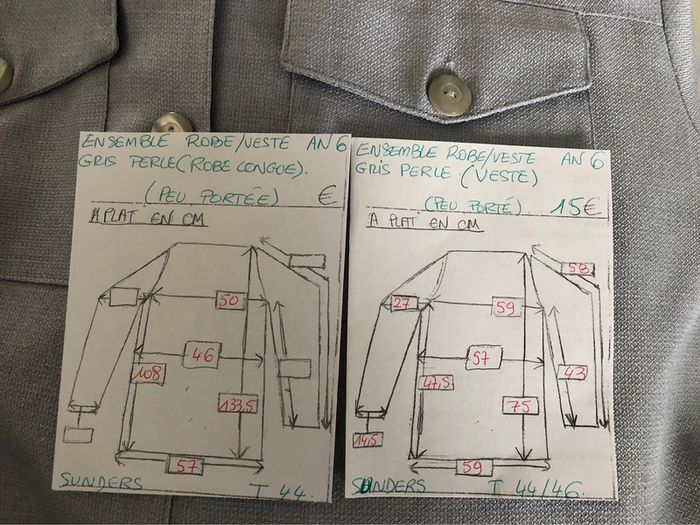 ENSEMBLE ROBE/VESTE AN 6
GRIS PERLE (ROBE LONGUE).
(PEU PORTÉE) €
A PLAT EN CM
50
46
108
133,5
57
SUNDERS T 44.
ENSEMBLE ROBE/VESTE AN 6
GRIS PERLE. (VESTE)
(PEU PORTÉ) 15€
A PLAT EN CM
58
27
59
57
47,5
43
75
14,5
59
SUNDERS T 44/46.